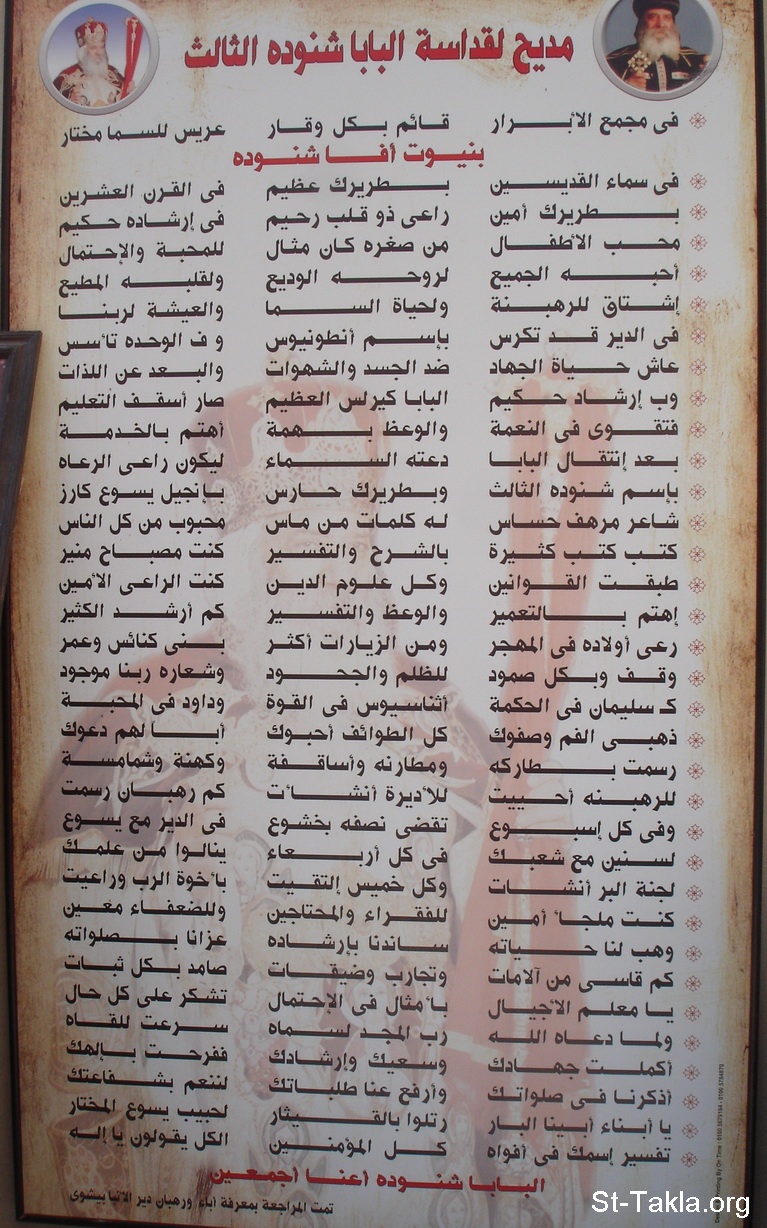 مديح لقداسة البابا شنوده الثالث
فى مجمع الأبرار قائم بكل وقار عريس للسما مختار
بنيوت أفا شنوده
فى سماء القديسين بطريرك عظيم فى القرن العشرين
بطريرك أمين راعى ذو قلب رحيم فى إرشاده حكيم
محب الأطفال من صغره كان مثال للمحبة والإحتمال
أحبه الجميع لروحه الوديع ولقلبه المطيع
إشتاق للرهبنة ولحياة السما والعيشة لربنا
فى الدير قد تكرس بإسم أنطونيوس و ف الوحده تأسس
عاش حياة الجهاد ضد الجسد والشهوات والبعد عن اللذات
وب إرشاد حكيم البابا كيرلس العظيم صار أسقف التعليم
فتقوى فى النعمة والوعظ بهمة أهتم بالخدمة
بعد إنتقال البابا دعته السماء ليكون راعى الرعاه
بإسم شنوده الثالث وبطريرك حارس بإنجيل يسوع كارز
شاعر مرهف حساس له كلمات من ماس محبوب من كل الناس
كتب كتب كثيرة بالشرح والتفسير كنت مصباح منير
طبقت القوانين وكل علوم الدين كنت الراعى الأمين
إهتم بالتعمير والوعظ والتفسير كم أرشد الكثير
رعى أولاده فى المهجر ومن الزيارات أكثر بنى كنائس وعمر
وقف وبكل صمود للظلم والجحود وشعاره ربنا موجود
كـ سليمان فى الحكمة أثناسيوس فى القوة وداود فى المحبة
ذهبى الفم وصفوك كل الطوائف أحبوك أبا لهم دعوك
رسمت بطاركه ومطارنه وأساقفة وكهنة وشمامسة
للرهبنه أحييت للأديرة أنشأت كم رهبان رسمت
وفى كل إسبوع تقضى نصفه بخشوع فى الدير مع يسوع
لسنين مع شعبك فى كل أربعاء ينالوا من علمك
لجنة البر أنشات وكل خميس إلتقيت بأخوة الرب وراعيت
كنت ملجأ أمين للفقراء والمحتاجين وللضعفاء معين
وهب لنا حياته ساندنا بإرشاده عزانا بصلواته
كم قاسى من آلامات وتجارب وضيقات صامد بكل ثبات
يا معلم الأجيال بأمثال فى الإحتمال تشكر على كل حال
ولما دعاه الله رب المجد لسماه سرعت للقاه
أكملت جهادك وسعيك وإرشادك ففرحت بإلهك
أذكرنا فى صلواتك وأرفع عنا طلباتك لننعم بشفاعتك
يا أبناء أبينا البار رتلوا بالقيثار لحبيب يسوع المختار
تفسير إسمك فى أفواه كل المؤمنين الكل يقولون يا إله
البابا شنوده أعنا أجمعين
تمت المراجعة بمعرفة أباء ورهبان دير الانبا بيشوى
St-Takla.org